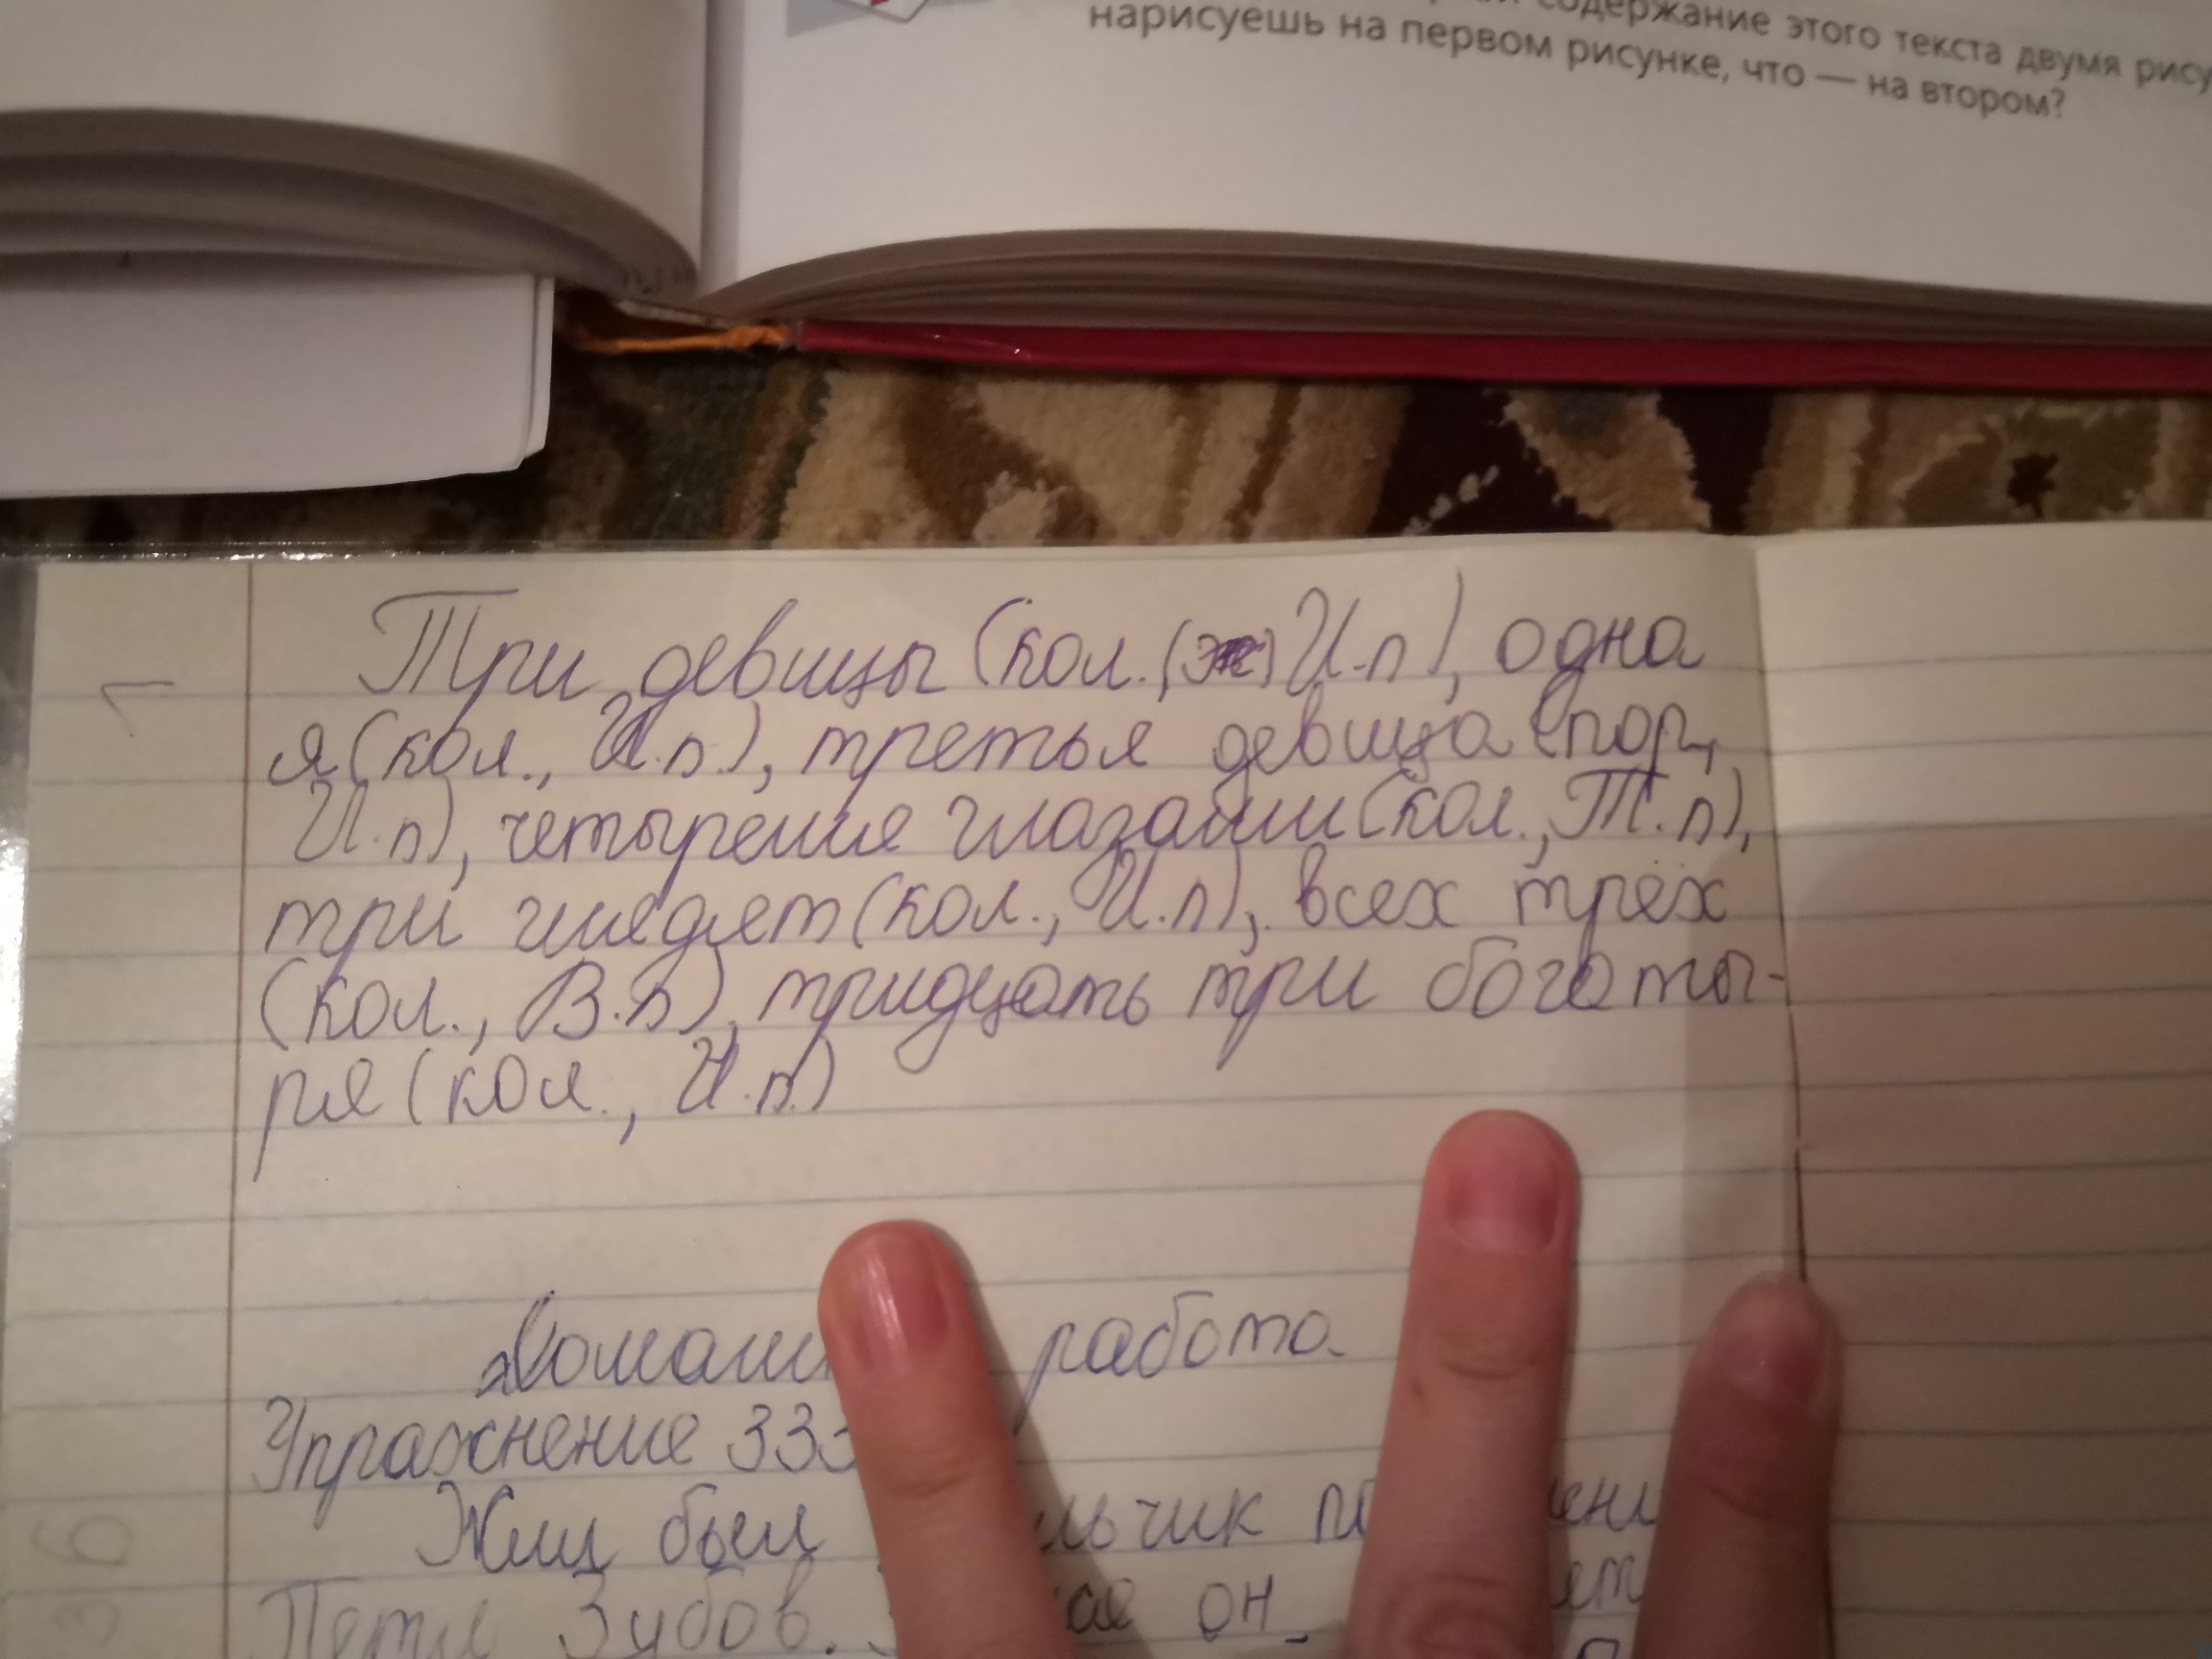 содержание этого текста двумя
нарисуешь на первом рисунке, что — на втором?
Три девицы (кол., И.п), одна
я (кол., И.п.), третья девица (пор.,
И.п), четыремя глазами (кол., Т.п),
три глядят (кол., И.п), всех трёх
(кол., В.п), тридцать три богаты-
ря (кол., И.п.)
работа
Упражнение 333
Жил был
Петя Зубов. он
36